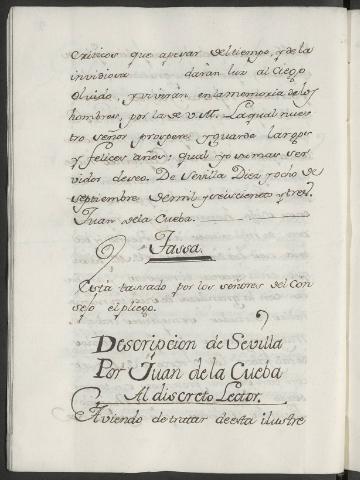 criticos que apesar del tiempo, y de la
invidiosa daràn luz al Ciego
Olvido, y viviràn en la memoria de los
hombres, por la de V.M. La qual nues-
tro señor prospere y guarde largos
y felices años, qual yo su mas ser-
vidor deseo. De Sevilla Diez y ocho de
septiembre de mil y seiscientos y tres.
Juan dela Cueba.
Tassa.
Està tassado por los señores del Con
sejo el pliego.
Descripcion de Sevilla
Por Juan de la Cueba
Al discreto Lector.
Aviendo de tratar de esta ilustre